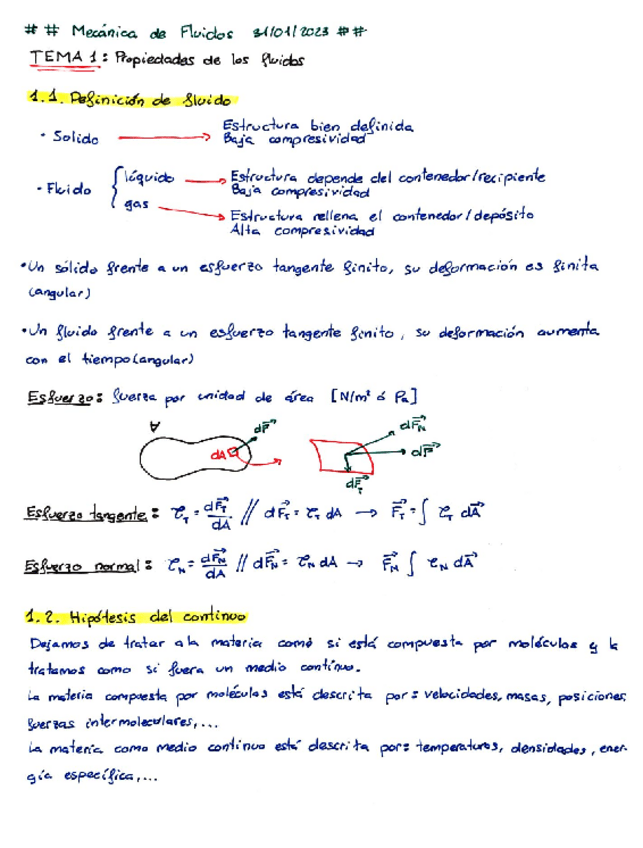 # # Mecánica de Fluidos 31/01/2023 # #
TEMA 1: Propiedades de los fluidos
1.1. Definición de fluido
· Solido → Estructura bien definida
Baja compresividad
· Fluido { líquido → Estructura depende del contenedor/recipiente
Baja compresividad
gas → Estructura rellena el contenedor/depósito
Alta compresividad
· Un sólido frente a un esfuerzo tangente finito, su deformación es finita
(angular)
· Un fluido frente a un esfuerzo tangente finito, su deformación aumenta
con el tiempo (angular)
Esfuerzo: fuerza por unidad de área [N/m² ó Pa]
∀ dA dF⃗ dF⃗_N dF⃗ dF⃗_T
Esfuerzo tangente: τ_T = dF⃗_T/dA // dF⃗_T = τ_T dA → F⃗_T = ∫ τ_T dA⃗
Esfuerzo normal: τ_N = dF⃗_N/dA // dF⃗_N = τ_N dA → F⃗_N ∫ τ_N dA⃗
1.2. Hipótesis del continuo
Dejamos de tratar a la materia como si está compuesta por moléculas y la
tratamos como si fuera un medio contínuo.
La materia compuesta por moléculas está descrita por: velocidades, masas, posiciones,
fuerzas intermoleculares,...
La materia como medio continuo está descrita por: temperaturas, densidades, ener-
gía específica,...